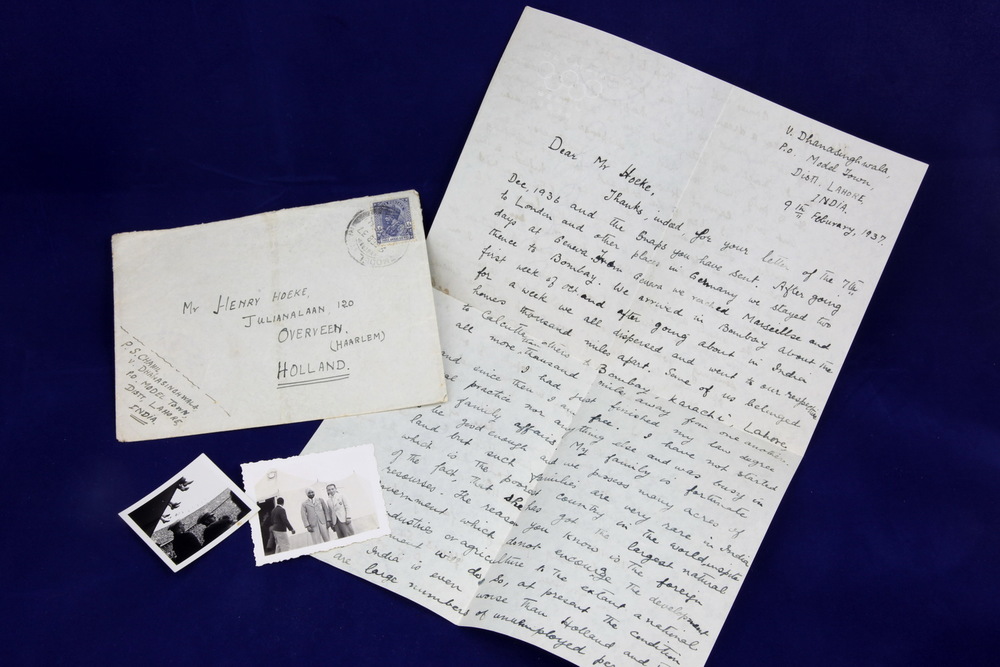 Mr HENRY HOEKE,
JULIANALAAN 120
OVERVEEN,
(HAARLEM)
HOLLAND.
P.S. CHAHIL,
V. DHANASINGHWALA
P.O. MODEL TOWN,
DISTT. LAHORE,
INDIA
V. Dhanasinghwala,
P.O. Model Town,
Distt. LAHORE,
INDIA.
9th Feburary, 1937.
Dear Mr Hoeke,
Thanks indeed for your letter of the 7th
Dec, 1936 and the snaps you have sent. After going
to London and other places in Germany we stayed two
days at Geneva. From Geneva we reached Marseillse and
thence to Bombay. We arrived in Bombay about the
first week of Oct and after going about in India
for a week we all dispersed and went to our respective
homes thousand miles apart. Some of us belonged
to Calcutta others to Bombay - Karachi - Lahore
all more thousand miles away from one another.
I had just finished my law degree
and since then I am free. I have not started
practice nor anything else and was busy in
family affairs. My family is fortunate
be good enough and we possess many acres of
land but such families are very rare in India
which is the poorest country in the world, inspite
of the fact, that she has got the largest natural
resourses. The reason you know is the foreign
government which donot encourge the development
industries or agriculture to the extant a national
government will do. So, at present the condition
India is even worse than Holland and
are large numbers of unemployed